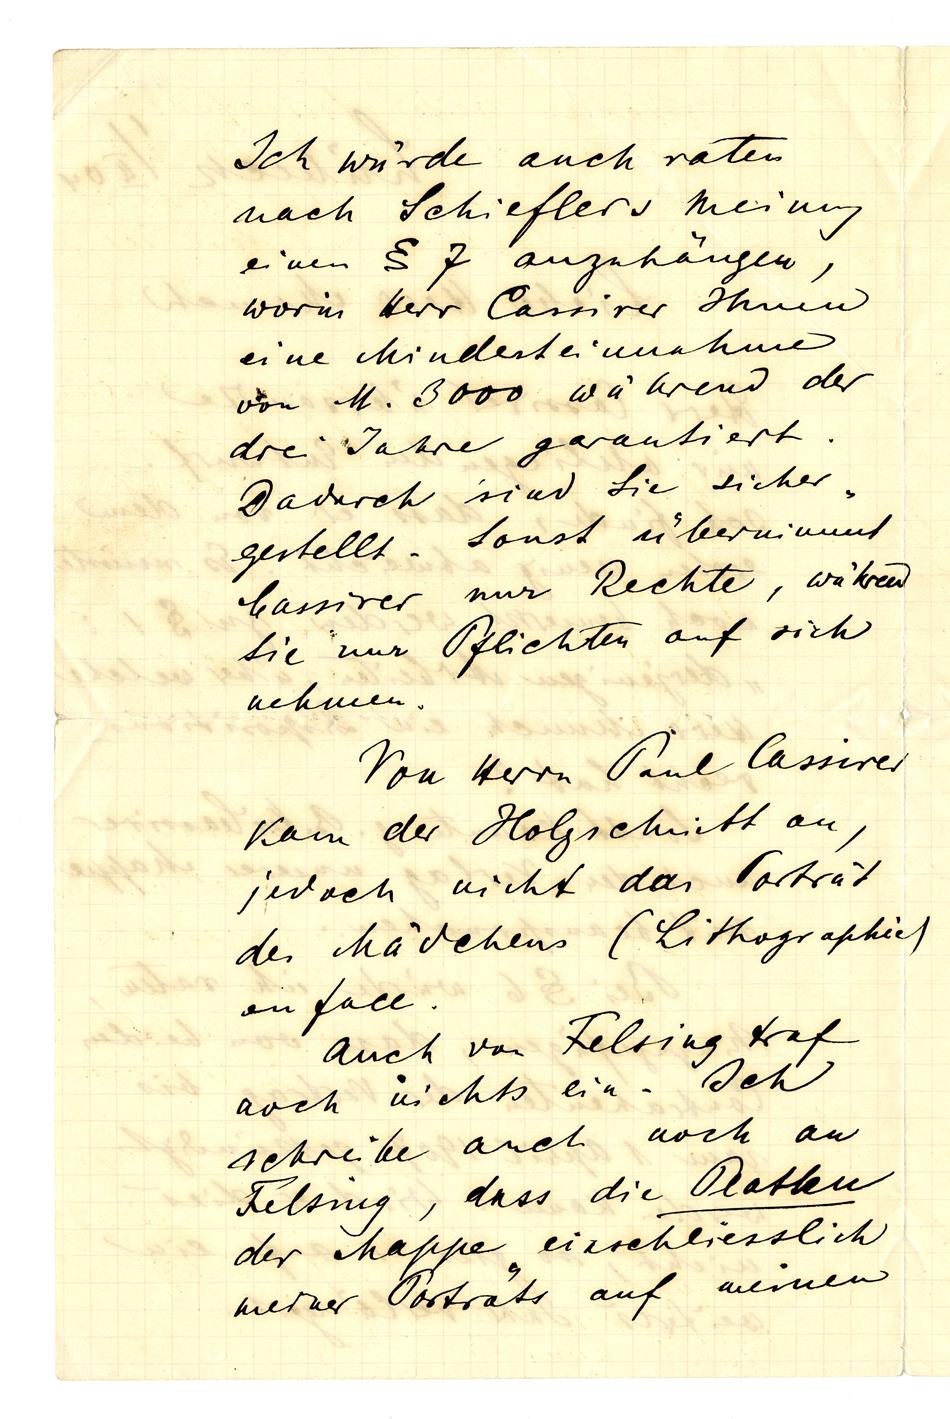 Ich würde auch raten
nach Schieflers Meinung
einen § 7 anzuhängen,
worin Herr Cassirer Ihnen
eine Mindesteinnahme
von M. 3000 während der
drei Jahre garantiert.
Dadurch sind Sie sicher-
gestellt. Sonst übernimmt
Cassirer nur Rechte, während
Sie nur Pflichten auf sich
nehmen.
Von Herrn Paul Cassirer
kam der Holzschnitt an,
jedoch nicht das Porträt
des Mädchens (Lithographie)
en face.
Auch von Felsing traf
noch nichts ein. Ich
schreibe auch noch an
Felsing, dass die Platten
der Mappe einschliesslich
meiner Porträts auf meinen